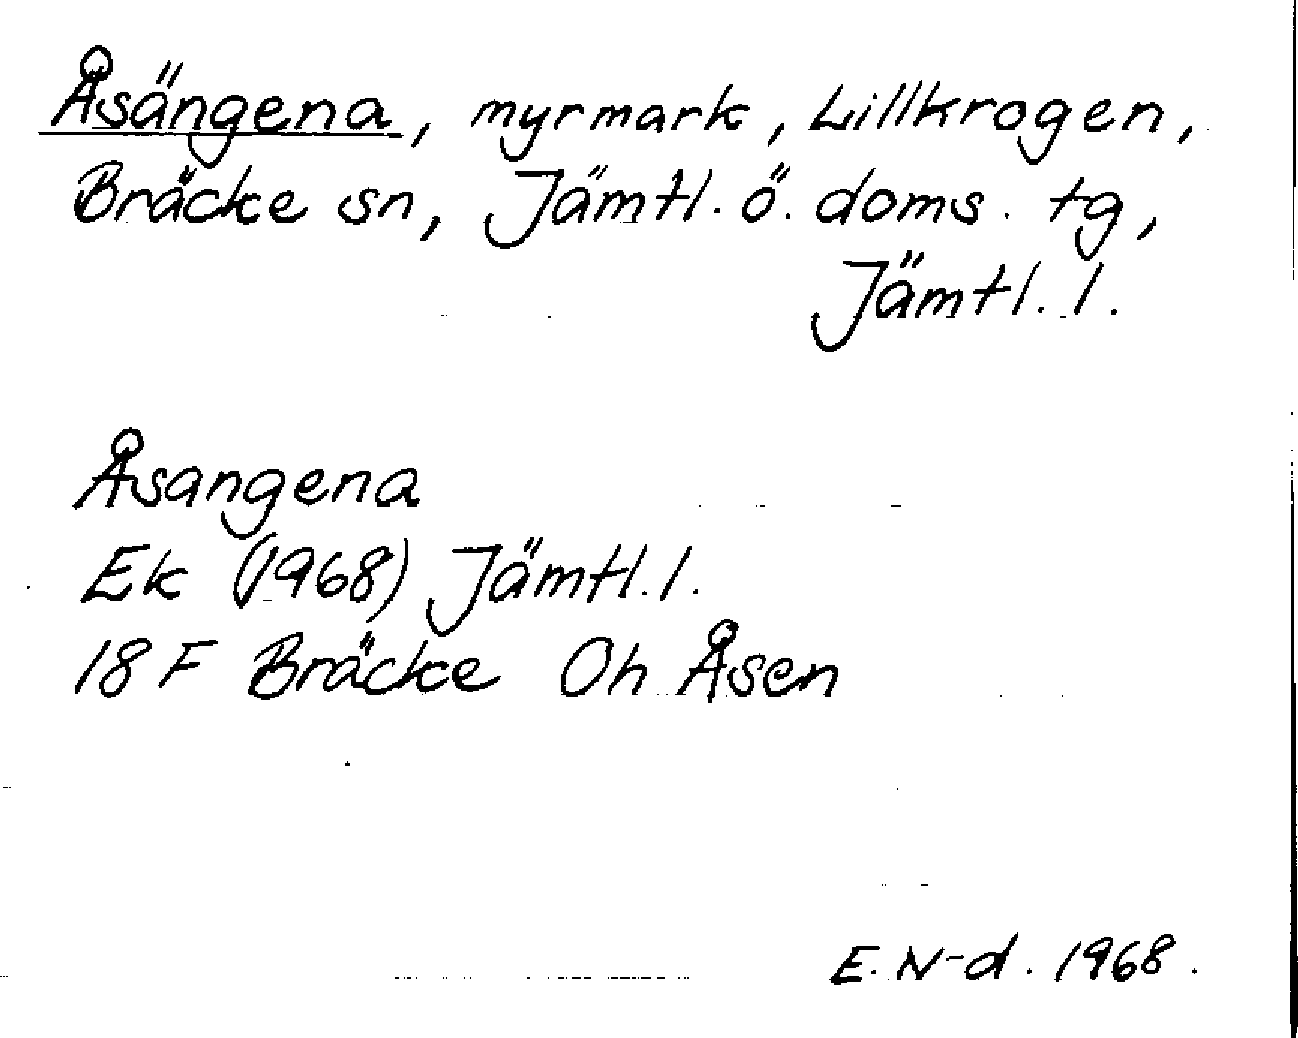 Åsängena, myrmark, Lillkrogen,
Bräcke sn, Jämtl. ö. doms. tg,
Jämtl. l.
Åsangena
Ek (1968) Jämtl. l.
18 F Bräcke Oh Åsen
E. N-d. 1968.